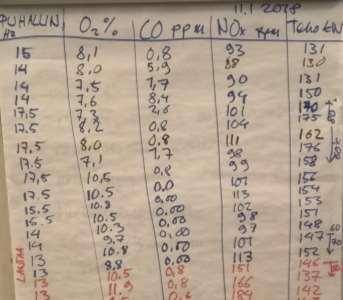 11.1 2018
PUHALLIN Hz O₂ % CO ppm NOx ppm Teho kW
15 8,1 0,8 93 131
14 8,0 5,9 88 130
14 7,5 1,7 90 131
14 7,6 8,4 94 150
17,5 7,3 2,6 101 170
17.5 8.2 0,8 104 175
17.5 8,0 0,8 111 162
17.5 7,1 1,7 98 176
17,5 10,5 0,8 99 158
17,5 10.5 0,0 101 156
15.5 10.8 0,00 113 154
16.5 10.5 0,00 102 153
14 10.3 0,00 98 151
14 9.7 0,00 97 148
13 10.8 0,00 101 147
13 8.8 0,00 113 152
13 10.5 0,8 151 146
13 11,9 0,8 166 137
184 142